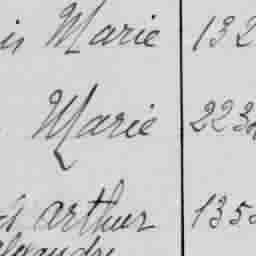 is Marie 132
Marie 223
arthur 135